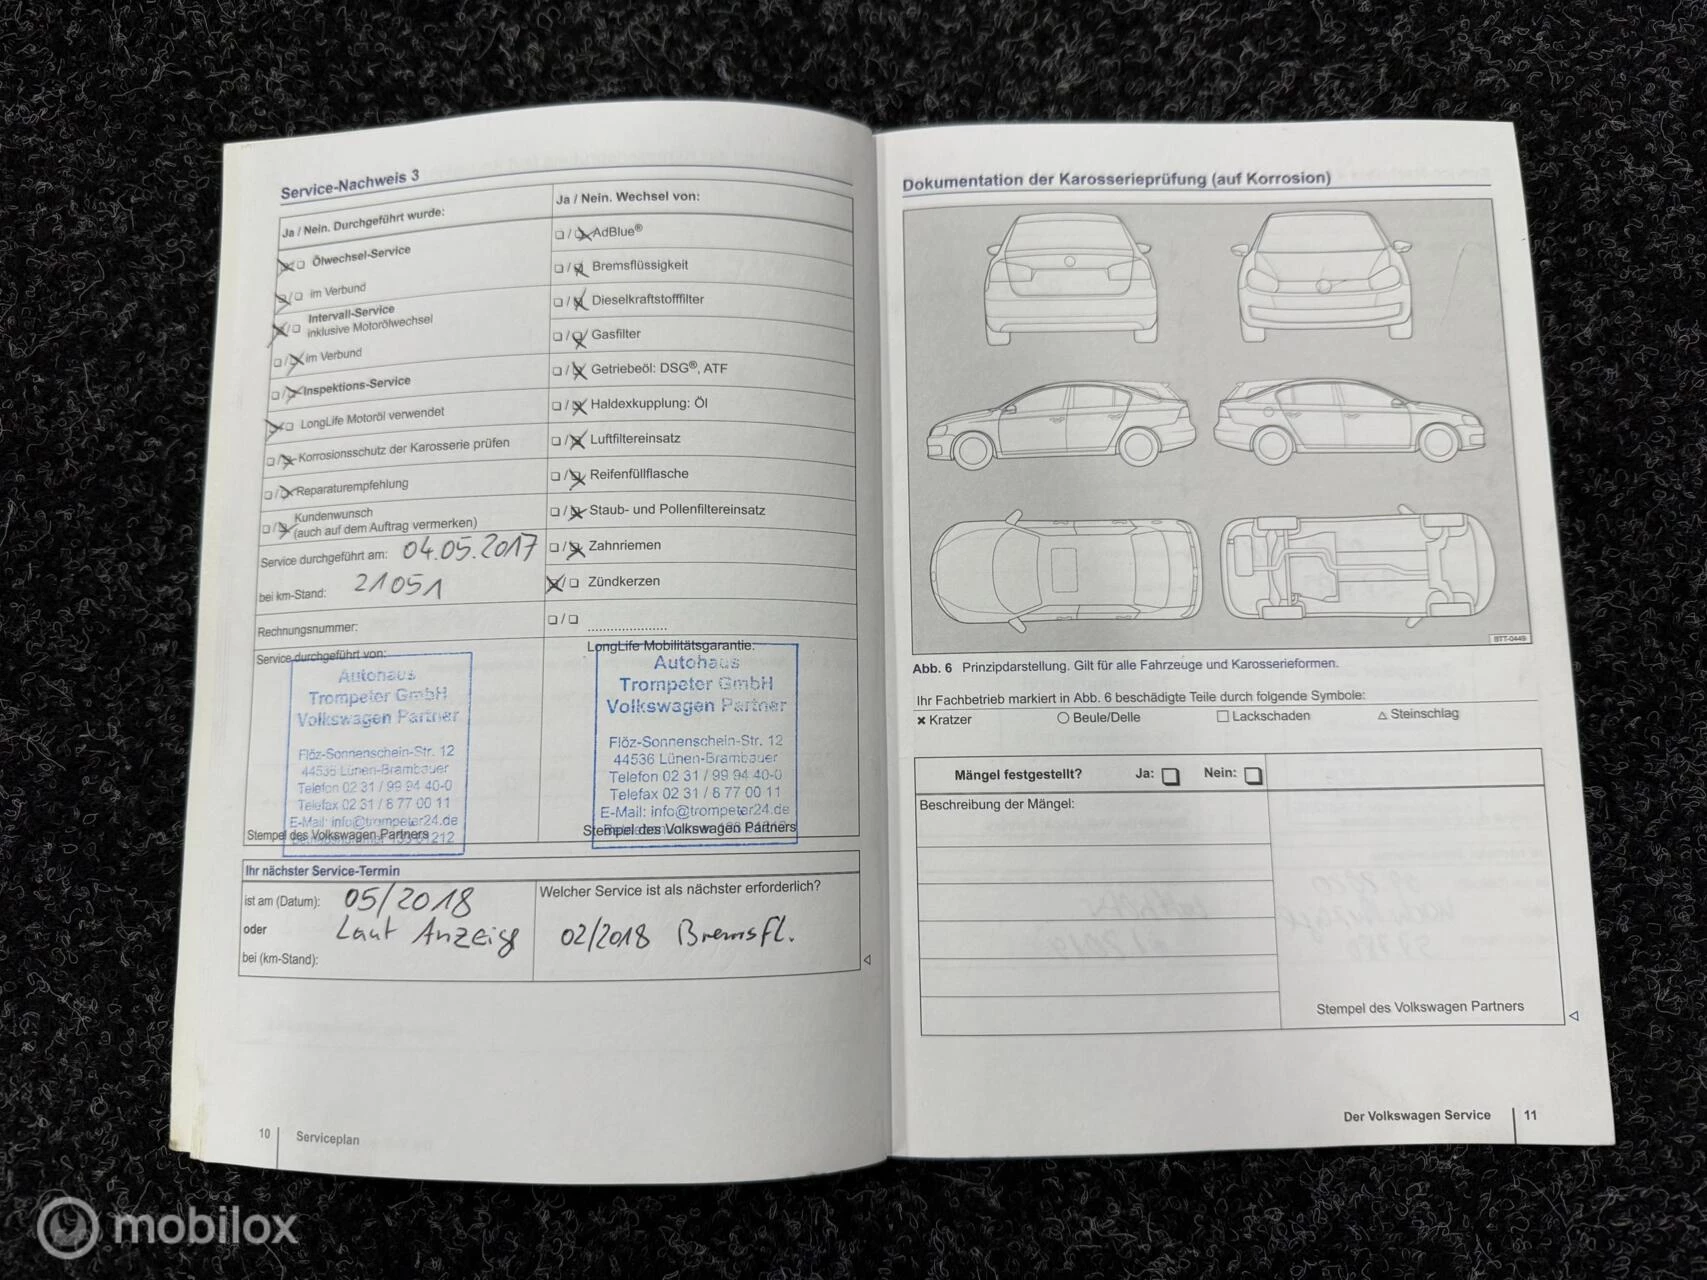 Service-Nachweis 3
Ja / Nein. Durchgeführt wurde:
Ölwechsel-Service
im Verbund
Intervall-Service
inklusive Motorölwechsel
im Verbund
Inspektions-Service
LongLife Motoröl verwendet
Korrosionsschutz der Karosserie prüfen
Reparaturempfehlung
Kundenwunsch
(auch auf dem Auftrag vermerken)
Service durchgeführt am: 04.05.2017
bei km-Stand: 21051
Rechnungsnummer:
Service durchgeführt von:
Autohaus
Trompeter GmbH
Volkswagen Partner
Flöz-Sonnenschein-Str. 12
44536 Lünen-Brambauer
Telefon 02 31 / 99 94 40-0
Telefax 02 31 / 8 77 00 11
E-Mail: info@trompeter24.de
Stempel des Volkswagen Partners
Ja / Nein. Wechsel von:
AdBlue®
Bremsflüssigkeit
Dieselkraftstofffilter
Gasfilter
Getriebeöl: DSG®, ATF
Haldexkupplung: Öl
Luftfiltereinsatz
Reifenfüllflasche
Staub- und Pollenfiltereinsatz
Zahnriemen
Zündkerzen
LongLife Mobilitätsgarantie:
Autohaus
Trompeter GmbH
Volkswagen Partner
Flöz-Sonnenschein-Str. 12
44536 Lünen-Brambauer
Telefon 02 31 / 99 94 40-0
Telefax 02 31 / 8 77 00 11
E-Mail: info@trompeter24.de
Stempel des Volkswagen Partners
Ihr nächster Service-Termin
ist am (Datum): 05/2018
oder Laut Anzeige
bei (km-Stand):
Welcher Service ist als nächster erforderlich?
02/2018 Bremsfl.
10 Serviceplan
Dokumentation der Karosserieprüfung (auf Korrosion)
BTT-0449
Abb. 6 Prinzipdarstellung. Gilt für alle Fahrzeuge und Karosserieformen.
Ihr Fachbetrieb markiert in Abb. 6 beschädigte Teile durch folgende Symbole:
× Kratzer ○ Beule/Delle □ Lackschaden △ Steinschlag
Mängel festgestellt? Ja: Nein:
Beschreibung der Mängel:
Stempel des Volkswagen Partners
Der Volkswagen Service 11
mobilox